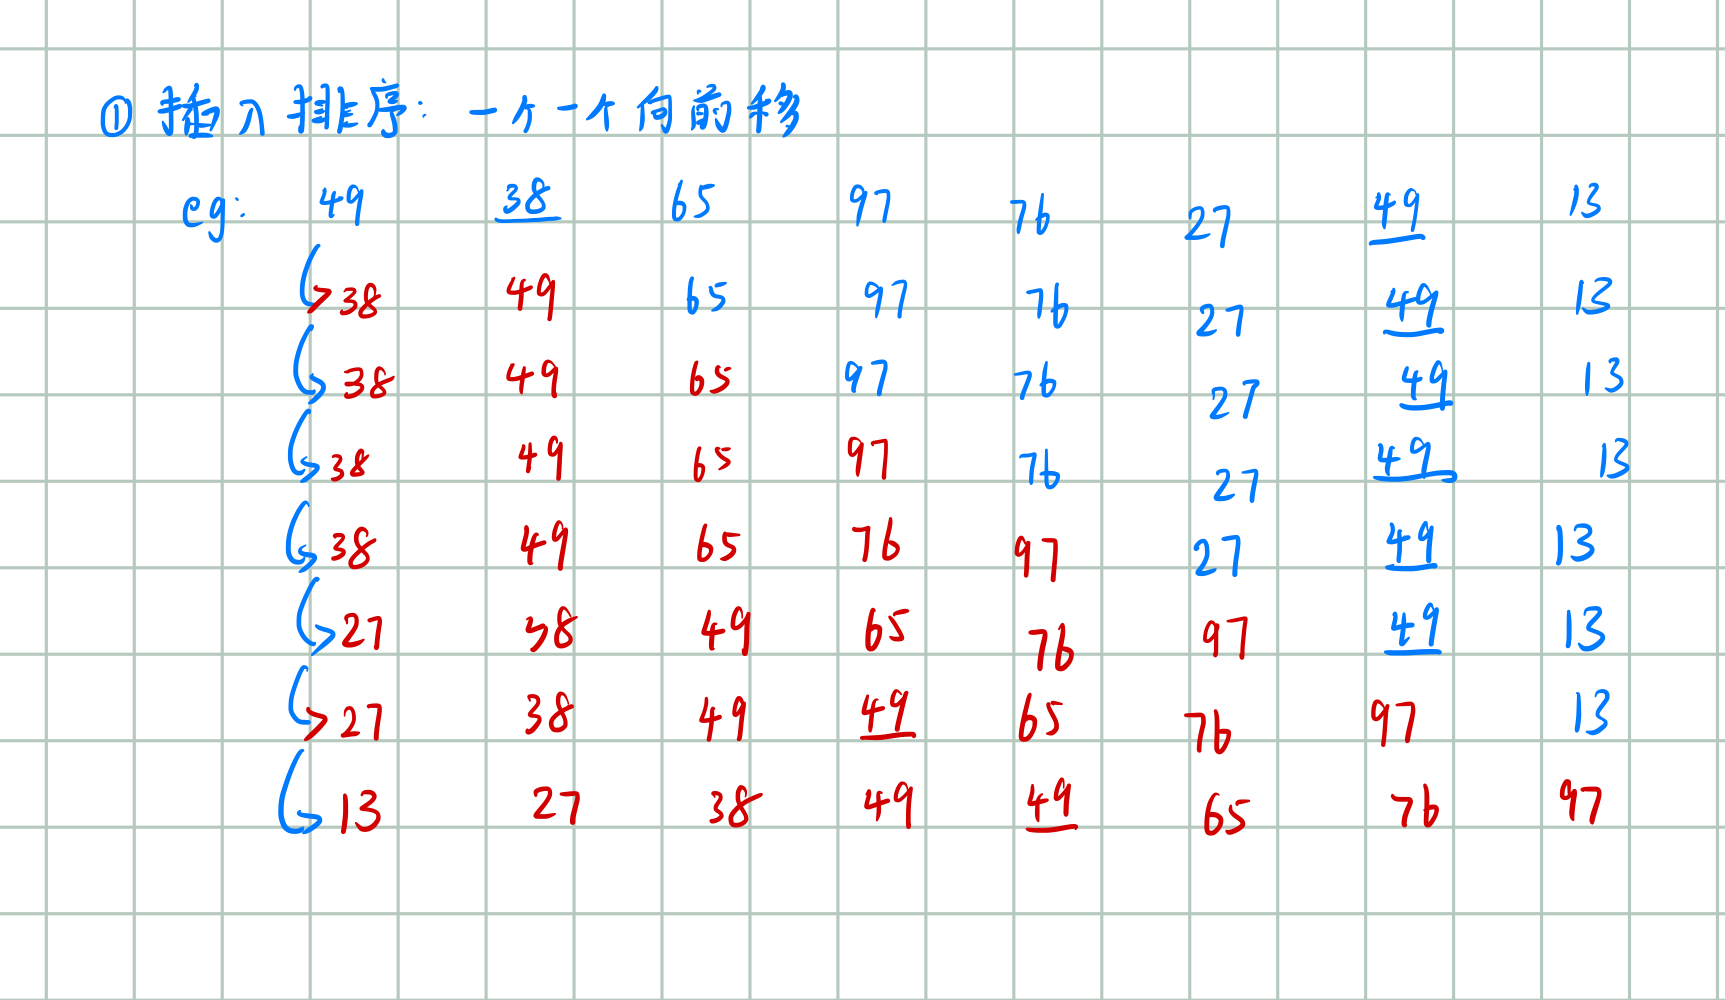 ① 插入排序: 一个一个向前移
eg: 49 38 65 97 76 27 49 13
38 49 65 97 76 27 49 13
38 49 65 97 76 27 49 13
38 49 65 97 76 27 49 13
38 49 65 76 97 27 49 13
27 38 49 65 76 97 49 13
27 38 49 49 65 76 97 13
13 27 38 49 49 65 76 97